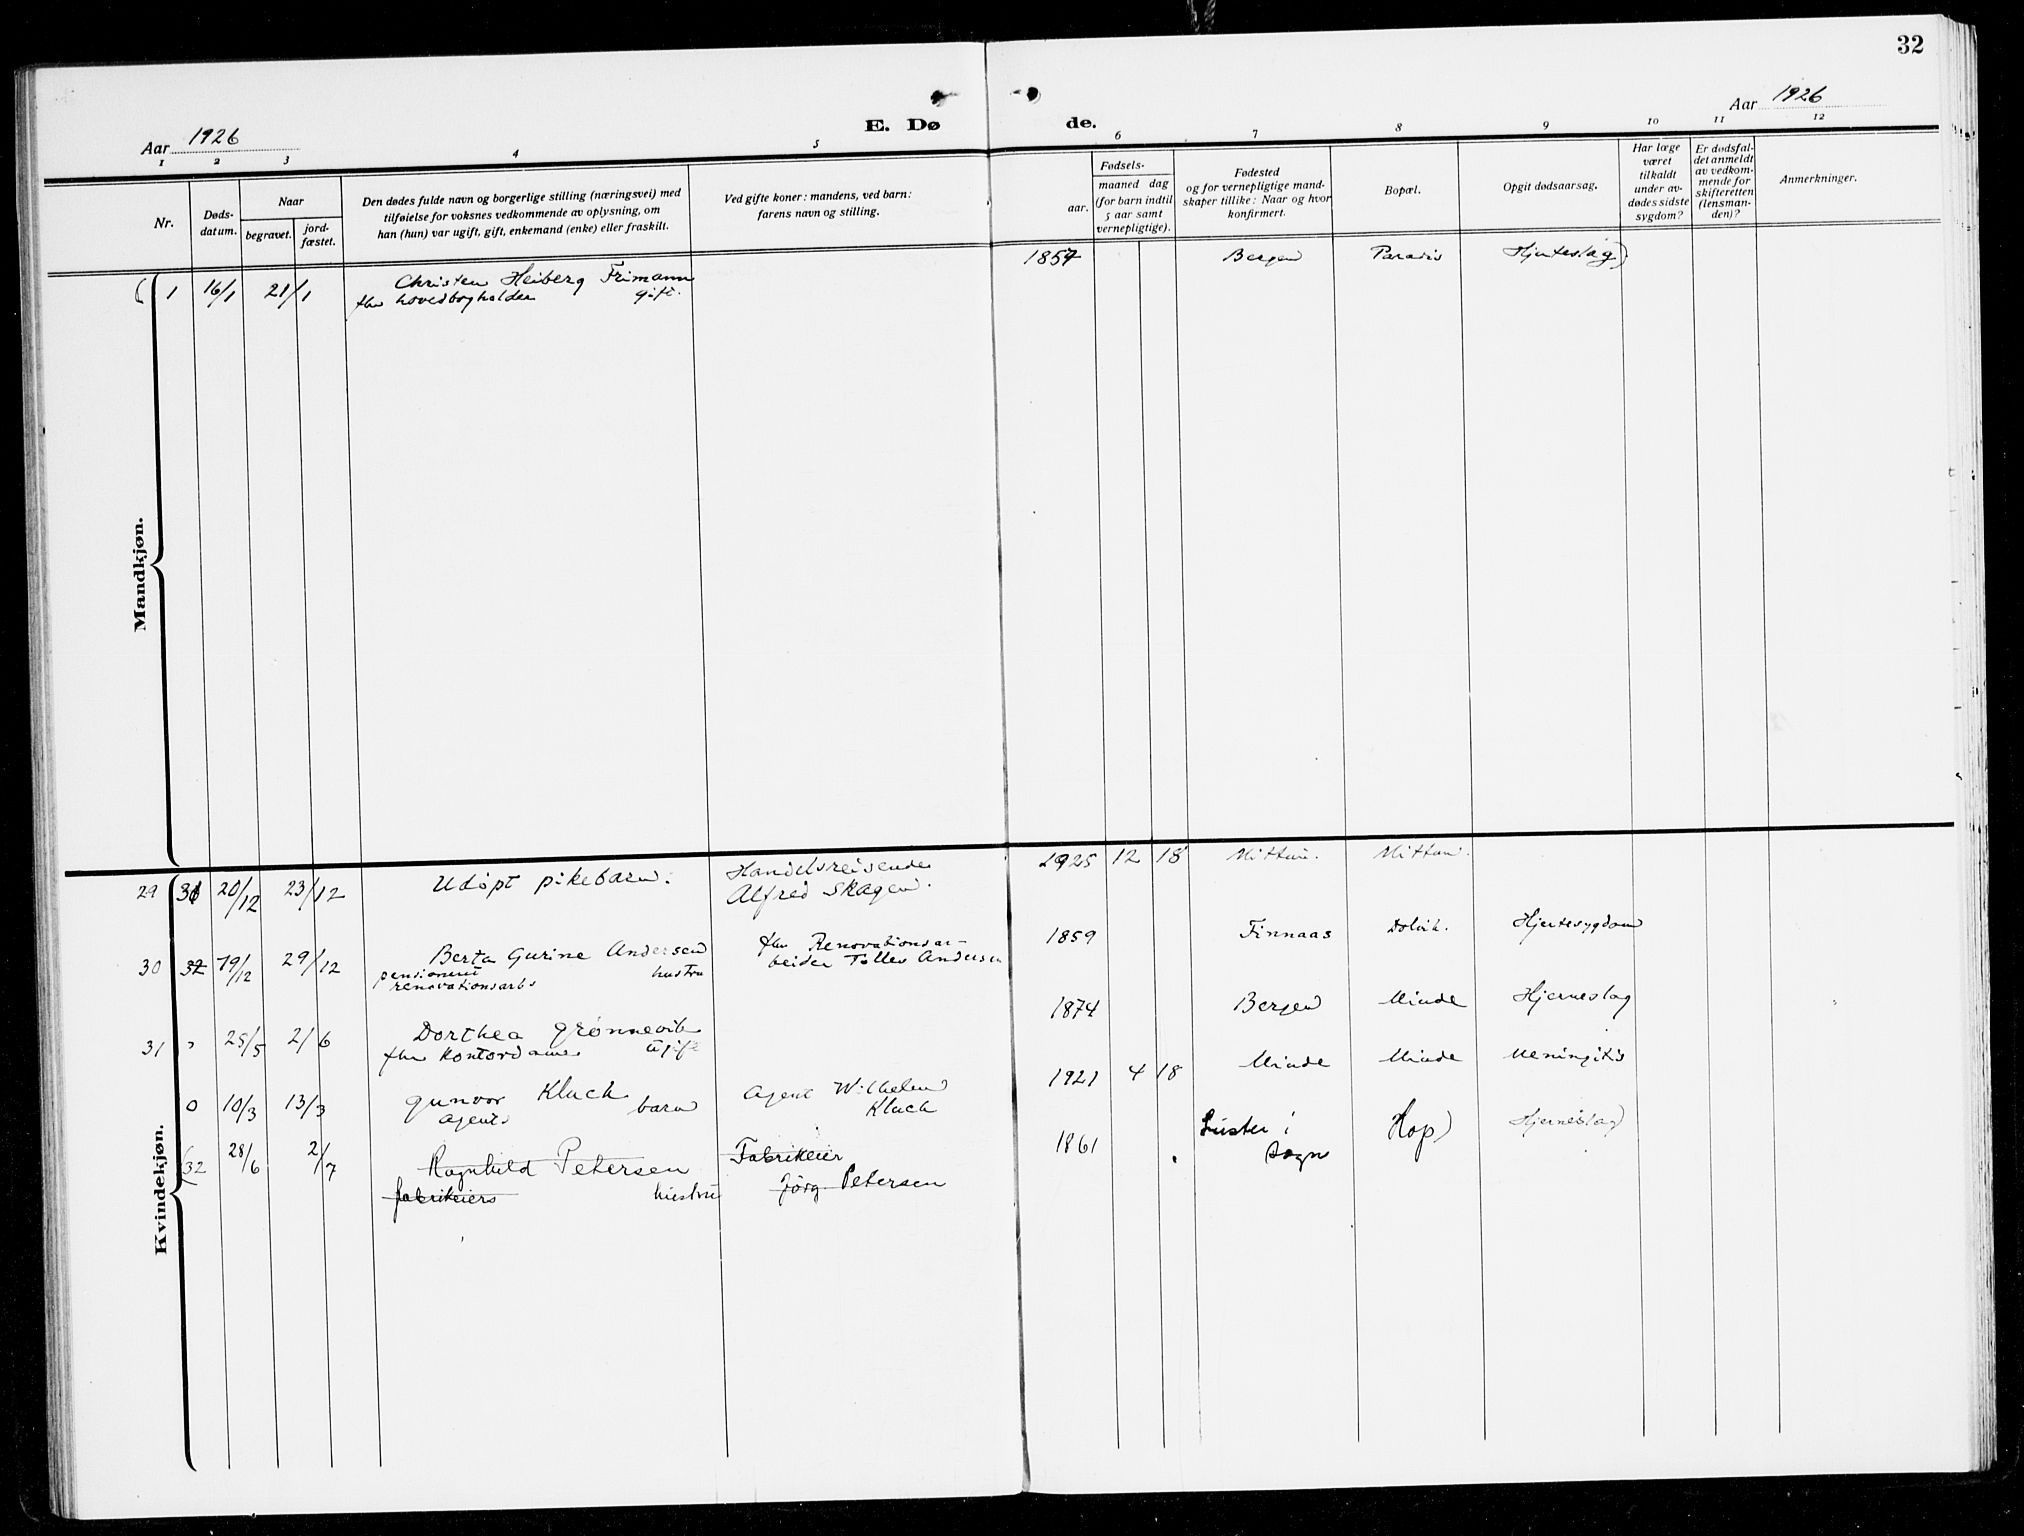 32
Aar 1926
E. Dø
de.
Aar 1926
1 2 3 4 5 6 7 8 9 10 11 12
Nr.
Døds-
datum.
Naar
begravet.
jord-
fæstet.
Den dødes fulde navn og borgerlige stilling (næringsvei) med
tilføielse for voksnes vedkommende av oplysning, om
han (hun) var ugift, gift, enkemand (enke) eller fraskilt.
Ved gifte koner: mandens, ved barn:
farens navn og stilling.
Fødsels-
aar.
maaned dag
(for barn indtil
5 aar samt
vernepligtige).
Fødested
og for vernepligtige mand-
skaper tillike: Naar og hvor
konfirmert.
Bopæl.
Opgit dødsaarsag.
Har læge
været
tilkaldt
under av-
dødes sidste
sygdom?
Er dødsfal-
det anmeldt
av vedkom-
mende for
skifteretten
(lensman-
den)?
Anmerkninger.
Mandkjøn.
( 1 16/1 21/1 Christen Heiberg Frimann 1857 Bergen Paradis Hjerteslag)
fhv hovedbogholder gift.
Kvindekjøn.
29 31 20/12 23/12 Udøpt pikebarn. Handelsreisende 1925 12 18 Mittun. Mittun.
Alfred Skagen.
30 32 19/12 29/12 Berta Gurine Andersen fhv Renovationsar- 1859 Finnaas Dolvik. Hjertesygdom
pensionert hustru beider Tollev Andersen
renovationsarbs
31 " 25/5 2/6 Dorthea Grønnevik 1874 Bergen Minde Hjerneslag
fhv Kontordame ugift
0 10/3 13/3 Gunvor Kluck Agent Wilhelm 1921 4 18 Minde Minde Meningitis
agents barn Kluck
(32 28/6 2/7 Ragnhild Petersen Fabrikeier 1861 Luster i Hop) Hjerneslag
fabrikeiers hustru Jörg Petersen Sogn